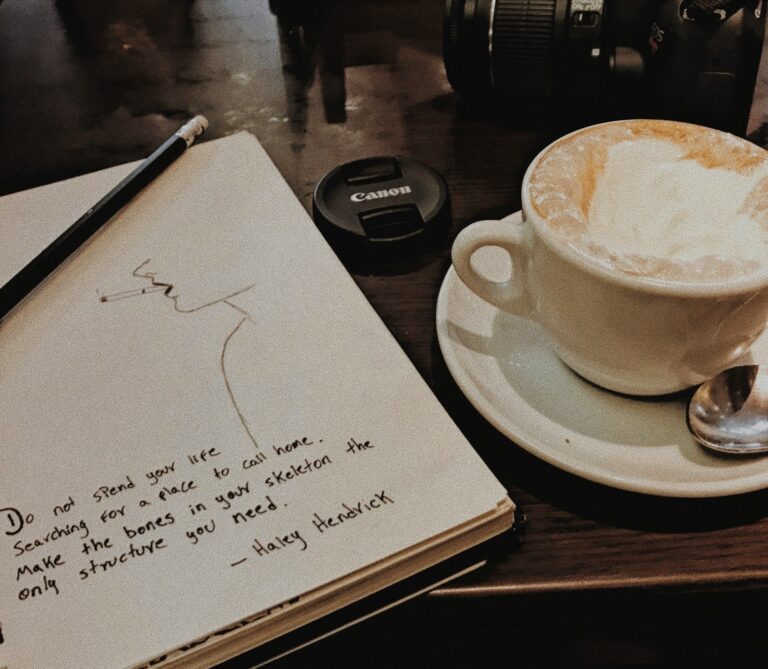 Canon
Do not spend your life
Searching for a place to call home.
Make the bones in your skeleton the
only structure you need.
— Haley Hendrick